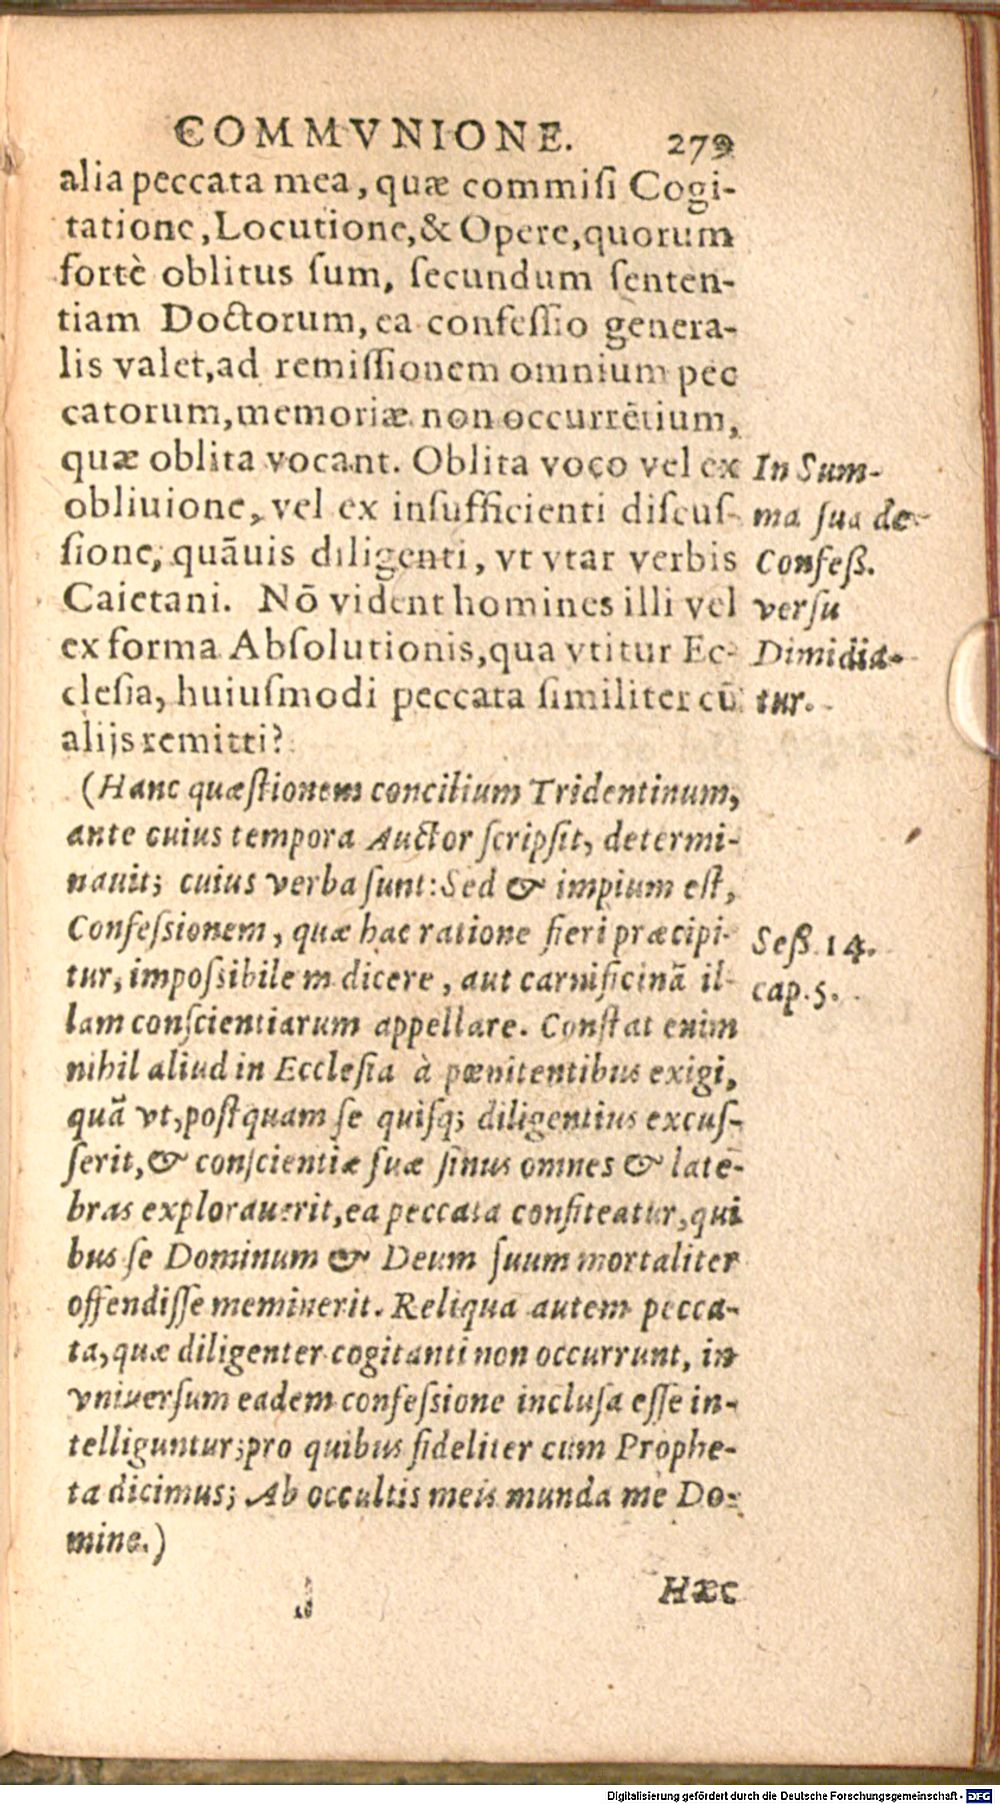 COMMVNIONE. 279
alia peccata mea, quæ commisi Cogi-
tatione, Locutione, & Opere, quorum
fortè oblitus sum, secundum senten-
tiam Doctorum, ea confessio genera-
lis valet, ad remissionem omnium pec
catorum, memoriæ non occurrẽtium,
quæ oblita vocant. Oblita voco vel ex
obliuione, vel ex insufficienti discus-
sione, quãuis diligenti, vt vtar verbis
Caietani. Nõ vident homines illi vel
ex forma Absolutionis, qua vtitur Ec-
clesia, huiusmodi peccata similiter cũ
alijs remitti?
In Sum-
ma sua de
Confeß.
versu
Dimidia-
tur.
(Hanc quæstionem concilium Tridentinum,
ante cuius tempora Auctor scripsit, determi-
nauit; cuius verba sunt: Sed & impium est,
Confessionem, quæ hac ratione fieri præcipi-
tur, impossibilem dicere, aut carnificinã il-
lam conscientiarum appellare. Constat enim
nihil aliud in Ecclesia à pœnitentibus exigi,
quã vt, postquam se quisq; diligentius excus-
serit, & conscientiæ suæ sinus omnes & late-
bras explorauerit, ea peccata confiteatur, qui
bus se Dominum & Deum suum mortaliter
offendisse meminerit. Reliqua autem pecca-
ta, quæ diligenter cogitanti non occurrunt, in
vniuersum eadem confessione inclusa esse in-
telliguntur; pro quibus fideliter cum Prophe-
ta dicimus; Ab occultis meis munda me Do-
mine.)
Seß. 14.
cap. 5.
Hæc
Digitalisierung gefördert durch die Deutsche Forschungsgemeinschaft - DFG